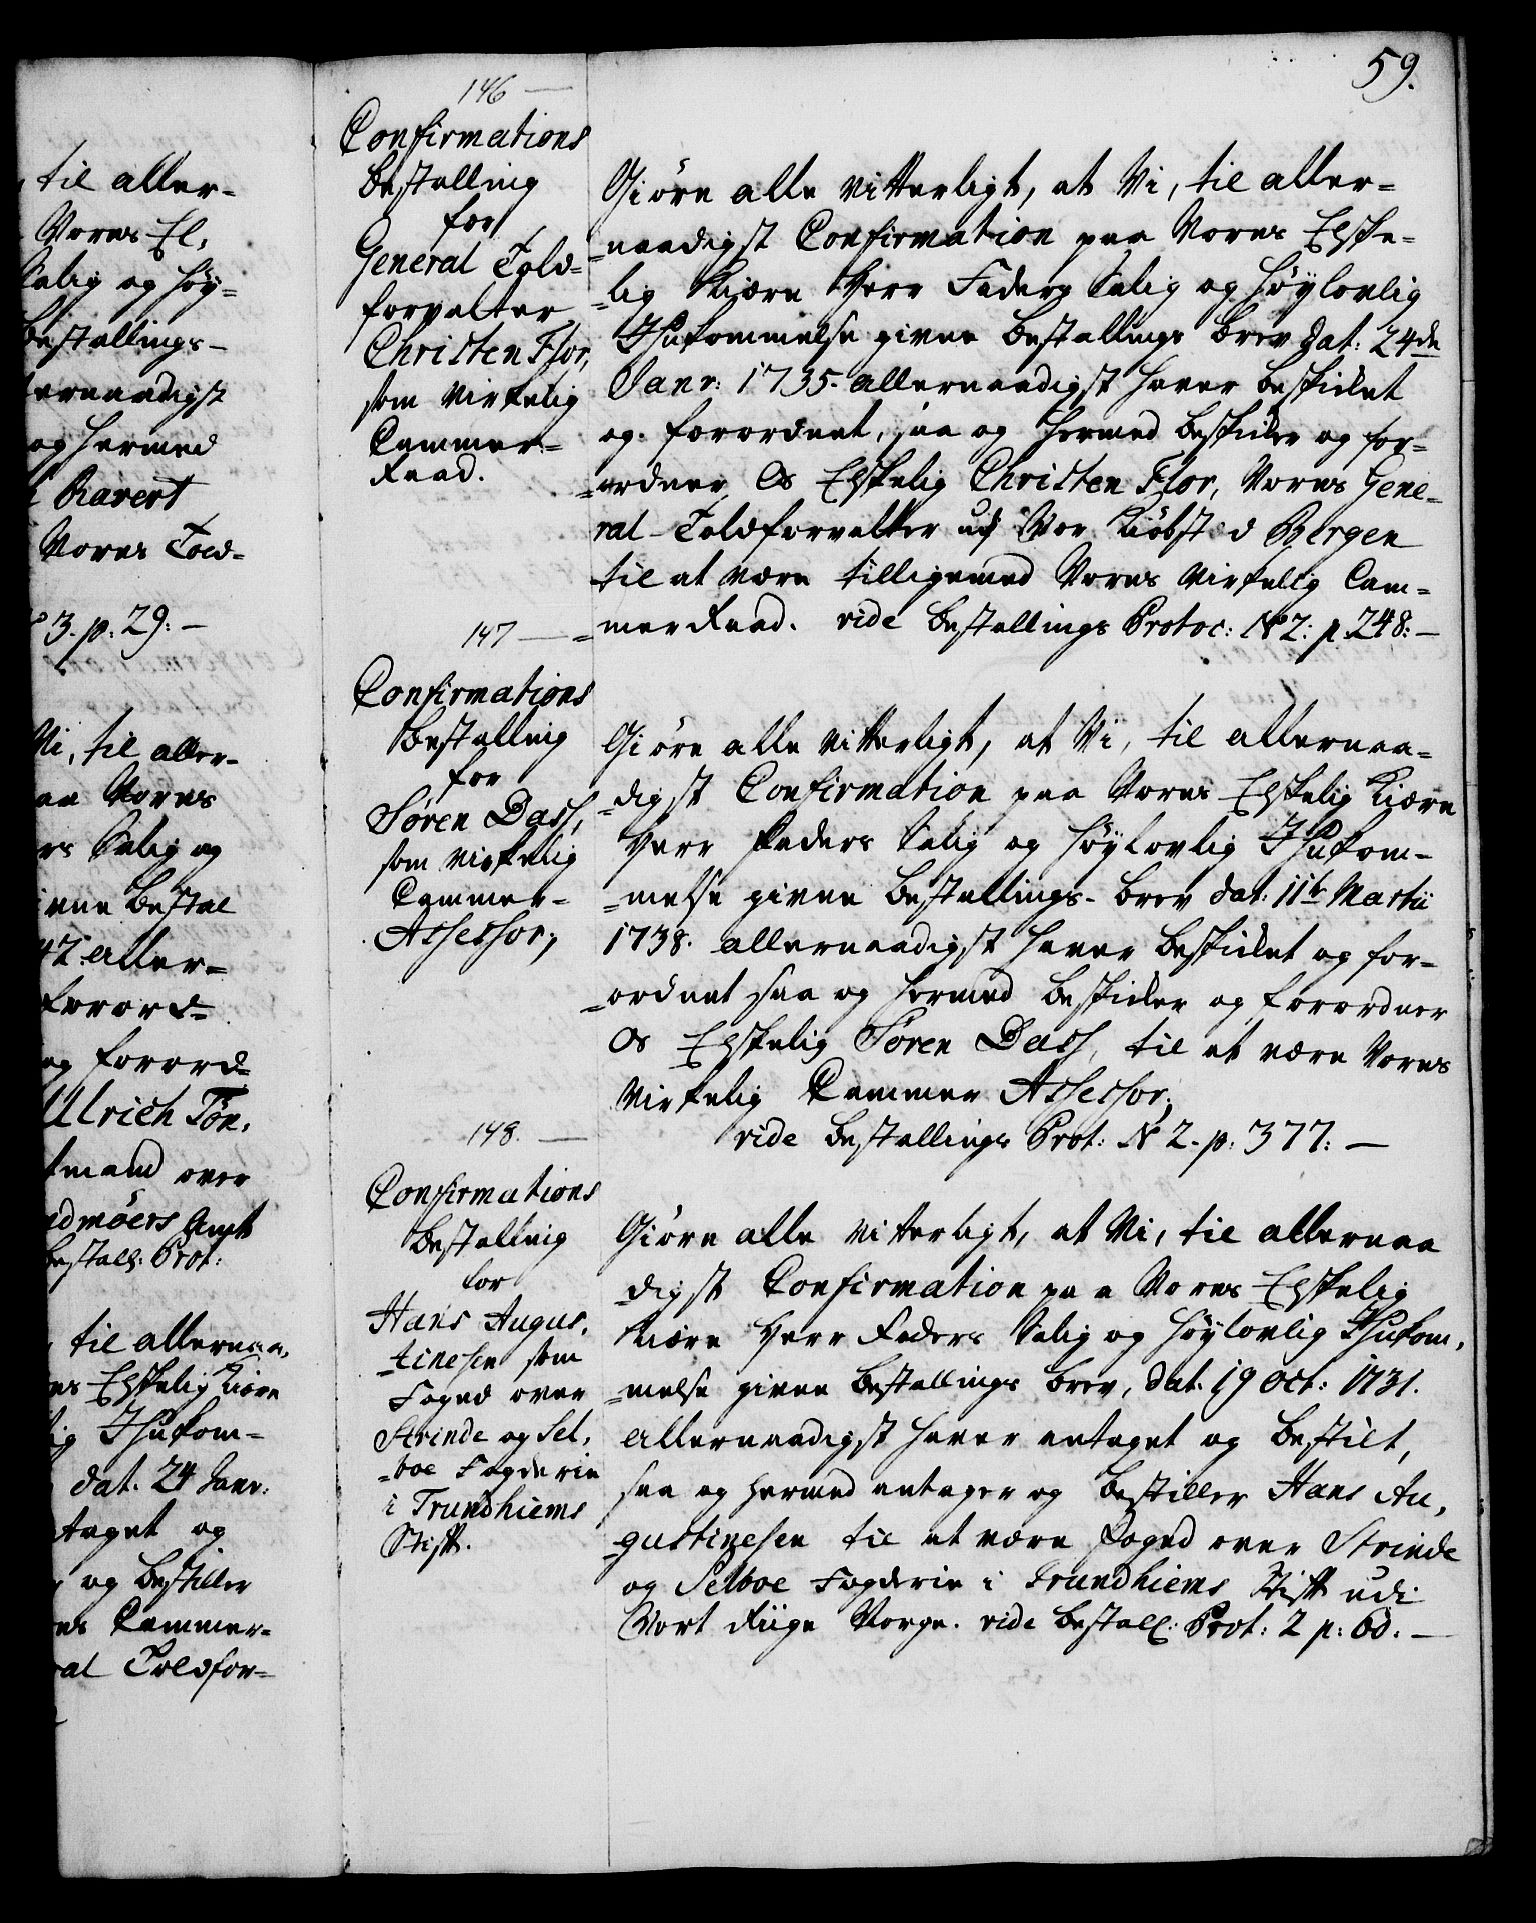 59.
til aller-
Vores El,
Salig og Høy=
Bestallings-
ernaadigst
og hermed
Ravert
Vores Told-
3. p: 29: -
Vi, til aller-
Vores
rs Salig og
ivne Bestal
47 aller-
forord-
og forord-
Ulrich Tøn,
tmand over
dmøers Amt
Bestall: Prot:
til allernaa,
es Elskelig Kiære
ig Ihukom-
dat. 24 Janr:
taget og
og bestiller
es Cammer-
al Toldfor-
146 -
Confirmations
Bestalling
for
General Told-
forvalter
Christen Flor,
som virkelig
Cammer-
Raad.
Giøre alle vitterligt, at Vi, til aller=
=naadigst Confirmation paa Vores Elske-
=lig Kiære Herr Faders Salig og Høylovlig
Ihukommelse givne Bestallings Brev dat: 24de
Janr: 1735. allernaadigst haver beskicket
og forordnet, saa og hermed beskicker og for-
=ordner Os Elskelig Christen Flor, Vores Gene-
ral-Toldforvalter udj Vor Kiöbst d Bergen
til at være tilligemed Vores virkelig Cam-
=mer Raad. vide Bestallings Protoc: N 2: p. 248: -
147 -
Confirmations
Bestalling
for
Søren Dass,
som virkelig
Cammer-
Assessor;
Giøre alle vitterligt, at Vi, til allernaa-
=digst Confirmation paa Vores Elskelig Kiære
Herr Faders Salig og Høylovlig Ihukom-
=melse givne Bestallings-Brev dat: 11te Martii
1738. allernaadigst haver beskicket og for-
=ordnet saa og hermed beskicker og forordner
Os Elskelig Søren Dass, til at være Vores
virkelig Cammer Assessor;
vide Bestallings Prot: N 2. p: 377: -
148. -
Confirmations
Bestalling
for
Hans Augus,
=tinesen som
Foged over
Strinde og Sel,
=boe Fogderie
i Trundhiems
Stift.
Giøre alle vitterligt, at Vi, til allernaa
=digst Confirmation paa Vores Elskelig
Kiære Herr Faders Salig og Høylovlig Ihukom,
=melse givne Bestallings Brev, dat: 19 Oct: 1731.
allernaadigst haver antaget og bestilt,
saa og hermed antager og bestiller Hans Au,
=gustinesen til at være Foged over Strinde
og Selboe Fogderie i Trundhiems Stift udi
Vort Riige Norge. vide Bestall: Prot: 2 p: 60. -